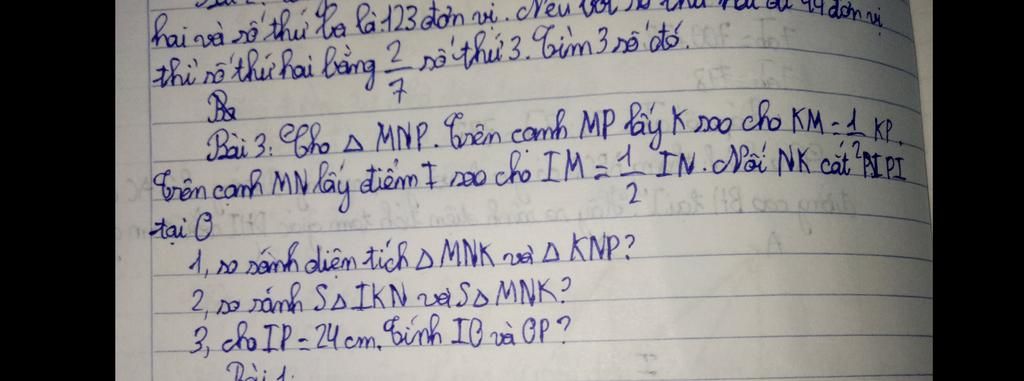 hai và số thứ ba là 123 đơn vị. Nếu bớt số thứ hai đi 44 đơn vị
thì số thứ hai bằng 2/7 số thứ 3. Tìm 3 số đó.
Bài 3: Cho Δ MNP. Trên cạnh MP lấy K sao cho KM = 1/2 KP.
Trên cạnh MN lấy điểm I sao cho IM = 1/2 IN. Nối NK cắt PI
tại O
1, so sánh diện tích Δ MNK và Δ KNP?
2, so sánh SΔ IKN và SΔ MNK?
3, cho IP = 24 cm. Tính IO và OP?
Bài 1: